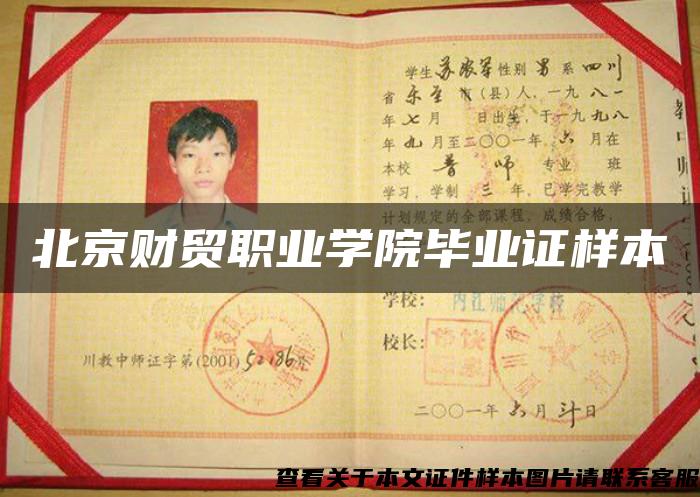 学生 苏农军 性别 男 系 四川
省 乐至 市(县)人,一九八一
年 七月 日出生,于一九九八
年 九 月至二〇〇一年 六 月在
本校 普师 专业 班
学习,学制 三 年,已学完教学
计划规定的全部课程,成绩合格,
北京财贸职业学院毕业证样本
学校: 内江师范学校
校长:
川教中师证字第(2001)52186号
二〇〇一年 六 月 廿日
查看关于本文证件样本图片请联系客服